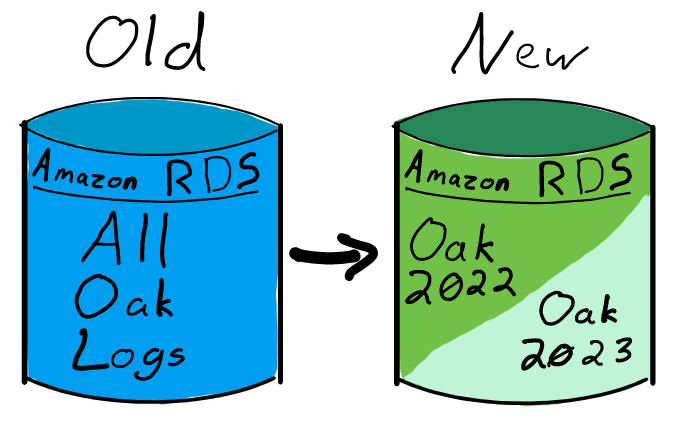 Old
New
Amazon RDS
All
Oak
Logs
Amazon RDS
Oak
2022
Oak
2023